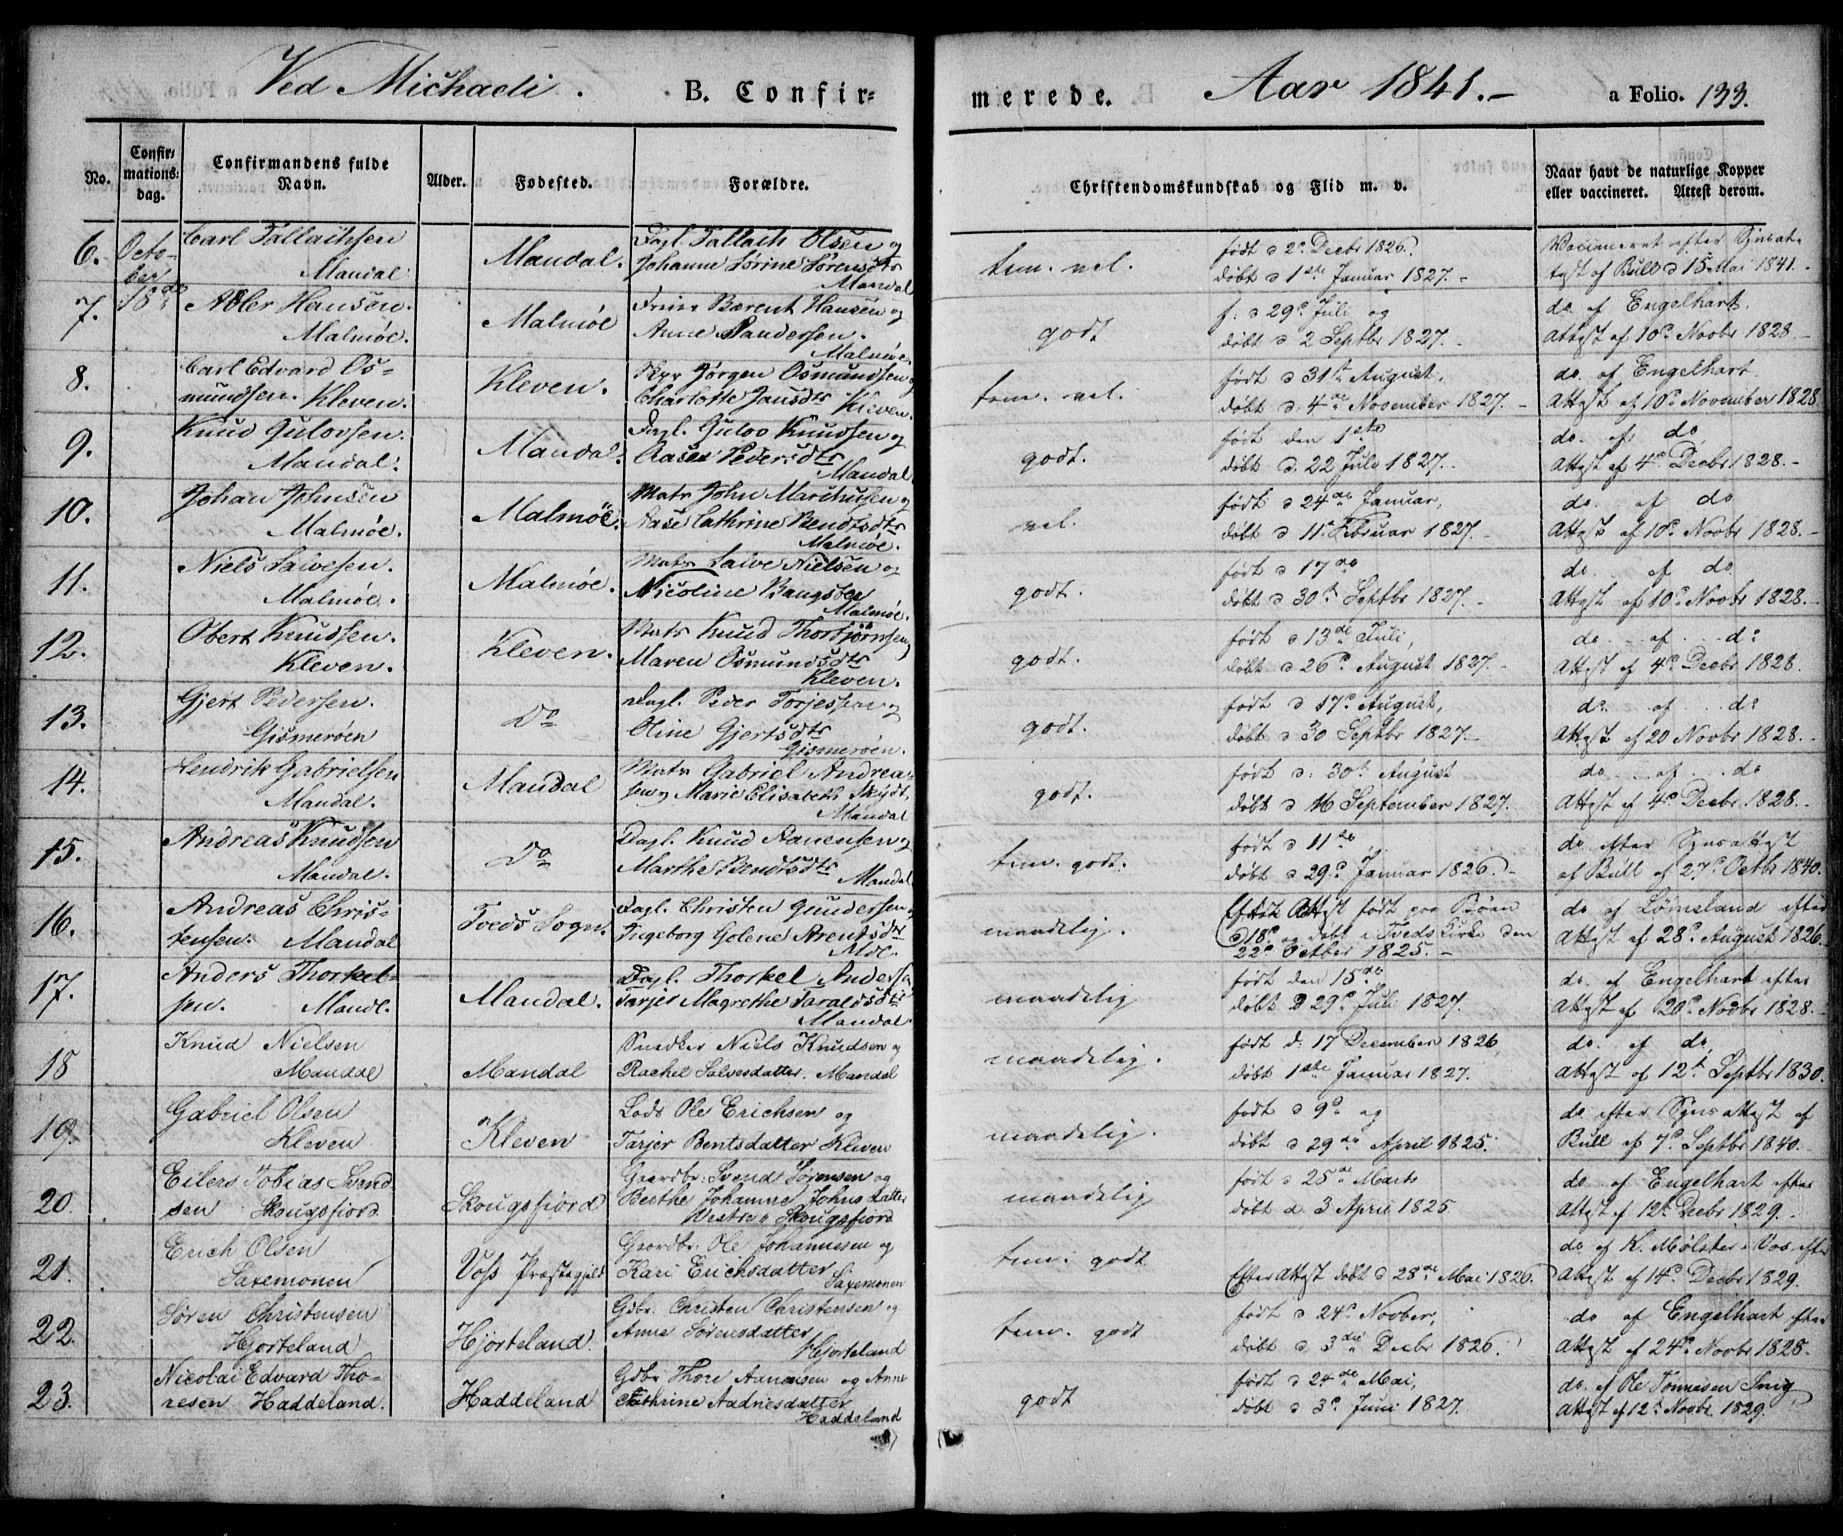 Ved Michaeli. B. Confir=
merede. Aar 1841.- a Folio. 133.
No.
Confir=
mations=
dag.
Confirmandens fulde
Navn.
Alder.
Fødested.
Forældre.
Christendomskundskab og Flid m. v.
Naar havt de naturlige Kopper
eller vaccineret. Attest derom.
6. Octo- Carl Tallachsen Mandal. Dagl. Tallach Olsen og tem. vel. født d 2d Decbr 1826. Vaccineret efter Synsat-
ber Mandal Johanne Sørine Sørensdtr døbt d 1ste Januar 1827.- test af Bull d 15 Mai 1841.-
Mandal
7. 18de Adler Hansen. Malmøe Berent Hansen og godt f. d 29d Juli og do. af Engelhart.
Malmøe. Anne Sandersen. døbt d 2 Septbr 1827.- Attest af 10d Novbr 1828.
Malmøe.
8. Carl Edvard Os- Kleven. Jørgen Osmundsen og tem. vel. født d 31te August, do. af Engelhart.
mundsen. Kleven. Charlotte Jansdtr Kleven. døbt d. 4de November 1827.- Attest af 10d November 1828.
9. Knud Gulovsen. Mandal. Dagl. Gulov Knudsen og godt. født den 1ste do. af do
Mandal. Aase Pedersdtr Mandal døbt d. 22 July 1827.- Attest af 4d Decbr 1828.-
10. Johan Johnsen Malmöe. Matr John Marchusen og vel. født d 24de Januar, do. af do
Malmøe. Aase Cathrine Bendtsdtr Malmøe. døbt d 11 Februar 1827.- Attest af 10d Novbr 1828.-
11. Niels Salvesen. Malmøe. Matr Salve Nielsen og godt. født d 17de do. af do
Malmøe. Nicoline Bangsber Malmøe. døbt d 30te Septbr 1827.- Attest af 10d Novbr 1828.-
12. Obert Knudsen. Kleven. Matr Knud Thorbjørnsen og godt. født d 13de Juli, do. af do
Kleven. Maren Osmundsdtr Kleven. døbt d 26d August 1827.- Attest af 4d Decbr 1828.
13. Gjert Pedersen. Do Dagl. Peder Torjessen og godt. født d 17d August, do. af do
Gismerøen Oline Gjertsdtr Gismerøen. døbt d 30 Septbr 1827.- Attest af 20 Novbr 1828.-
14. Hendrik Gabrielsen Mandal Matr Gabriel Andrea- godt. født d. 30te August do. af do
Mandal. sen og Marie Elisabeth Mandal døbt d 16 September 1827. Attest af 4d Decbr 1828.-
15. Andreas Knudsen Do Dagl. Knud Aanensen og tem. godt. født d 11te do. efter Synsattest
Mandal. Marthe Bendtsdtr Mandal døbt d 29d Januar 1826.- af Bull af 27d Octbr 1840.
16. Andreas Chris- Tveds Sogn. Dagl. Christen Gundersen og maadelig. Efter Attest født paa Bøen do. af Lømsland efter
tensen. Mandal Ingeborg Golene Arentsdtr Mdl. d 18d og døbt i Tveds Kirke den Attest af 28d August 1826.
22d October 1825.-
17. Anders Thorkel- Mandal. Dagl. Thorkel Andersen maadelig født den 15de do. af Engelhart efter
sen. Mandl. Tarjer Magrethe Taraldsdtr Mandal. døbt D 29d Juli 1827. Attest af 20d Novbr 1828.-
18 Knud Nielsen Mandal Snedker Niels Knudsen og maadelig. født d. 17 December 1826, do. af do,
Mandal Rachel Salvesdatter. Mandal døbt 1ste Januar 1827. Attest af 12te Septbr 1830.
19. Gabriel Olsen Kleven Lods Ole Erichsen og maadelig. født d 9d og do efter Synsattest af
Kleven Tarjer Bentsdatter Kleven døbt d 29de April 1825. Bull af 7d Septbr 1840.-
20. Eilers Tobias Svend Skougsfjord Gaardbr. Svend Sørensen og maadelig født d 25de Marts do. af Engelhart efter
sen Skougsfiord Berthe Johanne Johnsdatter døbt d. 3 April 1825 Attest af 12te Decbr 1829.-
Westre Skougsfiord
21. Erich Olsen Voss Præstegjeld Gaardbr. Ole Johannesen og tem. godt do af K. Mølster i Vos efter
Saxemonen Kari Erichsdatter Saxemonen Efter Attest døbt d 28de Mai 1826. Attest af 14d Decbr 1829.
22. Søren Christensen Hjorteland Gdbr. Christen Christensen og tem. godt født d 24d Novber, do af Engelhart efter
Hjorteland Anne Sørensdatter Hjorteland døbt d 3die Decbr 1826. Attest af 24d Novbr 1828.
23. Nicolai Edvard Tho- Haddeland Gdbr Thore Aanensen og Anne godt født d 24de Mai, do. af Ole Tønnesen Snig
resen Haddeland. Cathrine Aadnesdatter Haddeland døbt d 3d Juni 1827. Attest af 12te Novbr 1829.